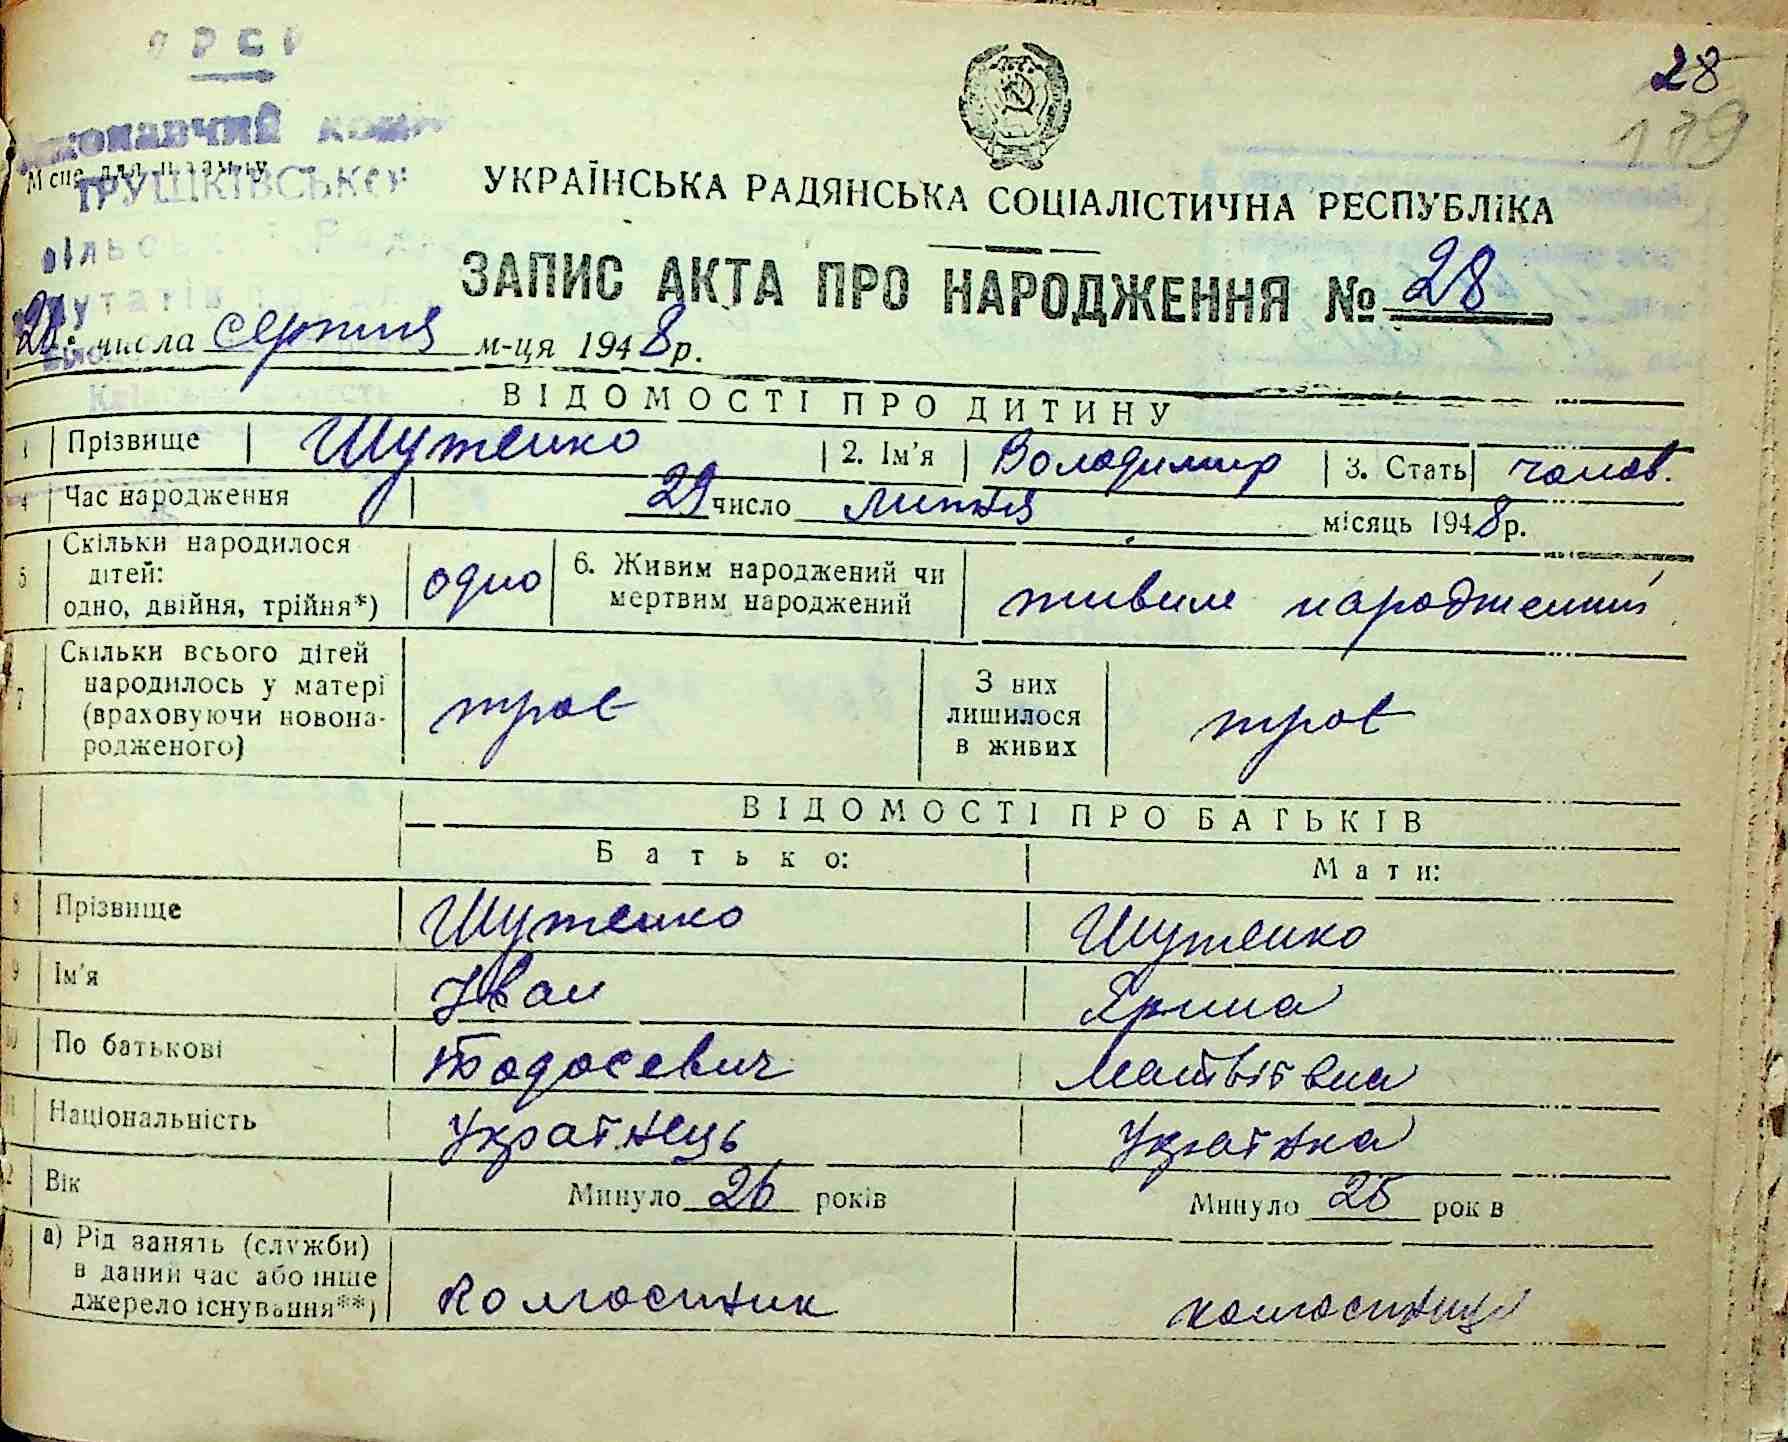 28
179
УРСР
Виконавчий комітет
Місце для штампу
ТРУШКІВСЬКОЇ
сільської Ради
депутатів
УКРАЇНСЬКА РАДЯНСЬКА СОЦІАЛІСТИЧНА РЕСПУБЛІКА
ЗАПИС АКТА ПРО НАРОДЖЕННЯ № 28
28 числа серпня м-ця 1948 р.
Київська область
ВІДОМОСТІ ПРО ДИТИНУ
1 Прізвище Шутенко 2. Ім'я Володимир 3. Стать чолов.
4 Час народження 29 число липня місяць 1948 р.
5 Скільки народилося дітей: одно, двійня, трійня*) одно 6. Живим народжений чи мертвим народжений живим народжений
7 Скільки всього дітей народилось у матері (враховуючи новонародженого) троє З них лишилося в живих троє
ВІДОМОСТІ ПРО БАТЬКІВ
Батько: Мати:
8 Прізвище Шутенко Шутенко
9 Ім'я Іван Ярина
10 По батькові Тодосевич Матвіївна
11 Національність Українець Українка
12 Вік Минуло 26 років Минуло 25 рок в
13 а) Рід занять (служби) в даний час або інше джерело існування**) Колгоспник колгоспниця